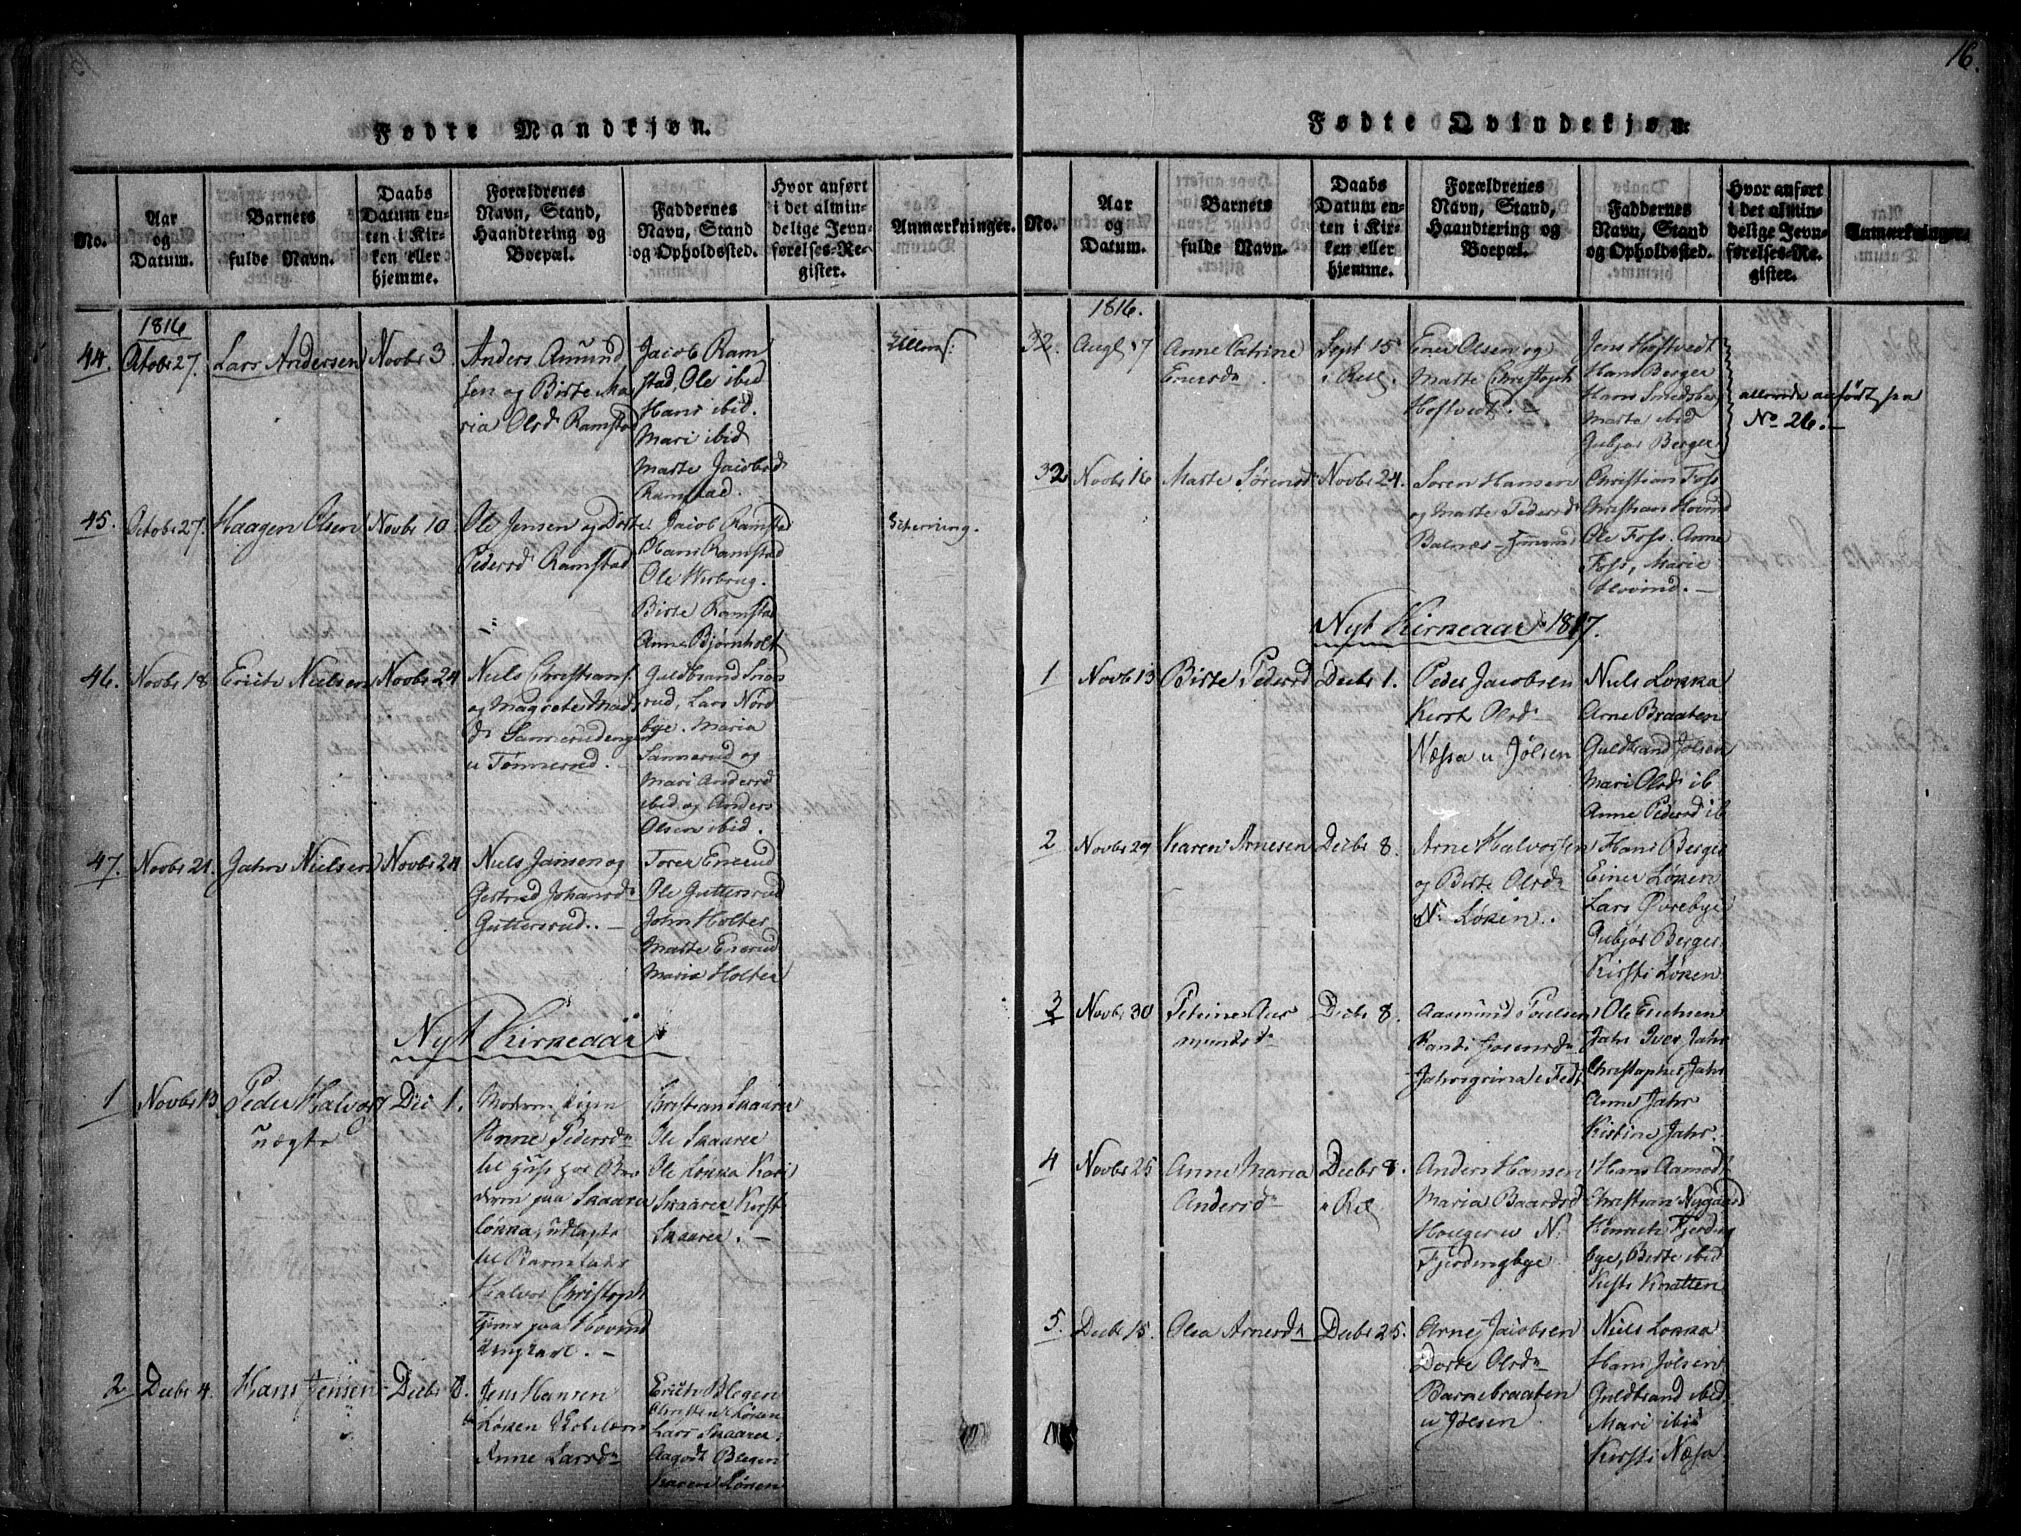 16.
Fødte Mandkjøn.
No.
Aar
og
Datum.
Barnets
fulde Navn.
Daabs
Datum en-
ten i Kir-
ken eller
hjemme.
Forældrenes
Navn, Stand,
Haandtering og
Boepæl.
Faddernes
Navn, Stand
og Opholdssted.
Hvor anført
i det almin-
delige Jevn-
førelses-Re-
gister.
Anmærkninger.
1816
44.
Octobr 27.
Lars Andersen
Novbr 3
Anders Amund
sen og Birte Ma
ria Olsd Ramstad
Jacob Ram
stad, Ole ibid
Hans ibid.
Mari ibid
Marte Jacobsd
Ramstad.
45.
Octobr 27.
Haagen Olsen
Novbr 10
Ole Jensen og Dorte
Pedersd Ramstad
Jacob Ramstad
Hans Ramstad
Ole
Birte Ramstad
Anne Bjørnholt
46.
Novbr 18
Erich Nielsen
Novbr 24
Niels Christians.
og Magrete Mads
d Sannerudengen
u Tønnerud.
Guldbrand
rud, Lars Nord
bye. Maria
Sannerud og
Mari Andersd
ibid og Anders
Olsen ibid.
47.
Novbr 21.
Jahn Nielsen
Novbr 24
Niels Jansen og
Gertrud Johansd
Guttersrud.
Torer Enerud
Ole Guttersrud
John Holter
Marte Enerud
Maria Holter
Nyt Kirkeaar
1
Novbr 13
Peder Halvors
uægte
Dec 1.
Moderen Pigen
Anne Pedersd
til Huse hos Bro
deren paa Skaarer
Løkka, udlagte
til Barnefader
Halvor Christoph
Tjener paa Hovind
Ungkarl.
Christian Skaarer
Ole Skaarer
Ole Løkka Kari
Skaarer Kirst
Skaarer.
2
Decbr 4.
Hans Jensen
Decbr 8.
Jens Hansen
Løken
Anne Larsd
Erich Blegen
Christen Løken
Lars Skaarer
Aagodt Blegen
Karen Løken
Fødte Qvindekjøn.
No.
Aar
og
Datum.
Barnets
fulde Navn.
Daabs
Datum en-
ten i Kir-
ken eller
hjemme.
Forældrenes
Navn, Stand,
Haandtering og
Boepæl.
Faddernes
Navn, Stand
og Opholdssted.
Hvor anført
i det almin-
delige Jevn-
førelses-Re-
gister.
Anmærkninger.
1816.
32.
Augl 17
Anne Catrine
Enersd
Sept 15
i Rel.
Ener Olsen og
Marte Christoph
Hoftvedt.
Jens Hoftvedt
Hans Berger
Hans Smedsber
Marte ibid
Gubjør Berger
allerede anført paa
No 26.
32
Novbr 16
Marte Sørensd
Novbr 24.
Søren Hansen
og Marte Pedersd
Balnæs
Christian Foss
Christian Hovind
Ole Foss. Anne
Foss, Marie
Hovind.
Nyt Kirkeaar 1817.
1
Novb 13
Birte Pedersd
Decbr 1.
Peder Jacobsen
Kirst Olsd
Næssa u Jølsen
Niels Løkka
Arne Braaten
Guldbrand Jølsen
Mari Olsd ib
Anne Pedersd ib
2
Novbr 29
Karen Arnesen
Decbr 8.
Arne Halvorsen
og Birte Olsd
N. Løken.
Hans Berger
Einer Løken
Lars Øvrebye
Gubjør Berger
Kirsti Løken
3
Novbr 30
Petrine Aas
mundsd
Decbr 8.
Aasmund Poulsen
Randi Joensd
Jahrsgrinda Fedt
Ole Erichsen
Jahr Iver Jahr
Christopher Jahr
Anne Jahr
Kistine Jahr.
4
Novbr 25
Anne Maria
Andersd
Decbr 8.
i Rel
Anders Hansen
Maria Baardsd
Houger u N.
Fjerdingbye
Hans Aamodt
Christian Nygaard
Fjerding
bye, Birte ibid
Kirsti Knatten
5.
Decbr 15.
Olea Arnesd
Decbr 25.
Arne Jacobsen
Dorte Olsd
Barnebraaten
u Jølsen
Niels Løkka
Hans Jølsen
Guldbrand ibid
Mari ibid
Kirsti Næssa